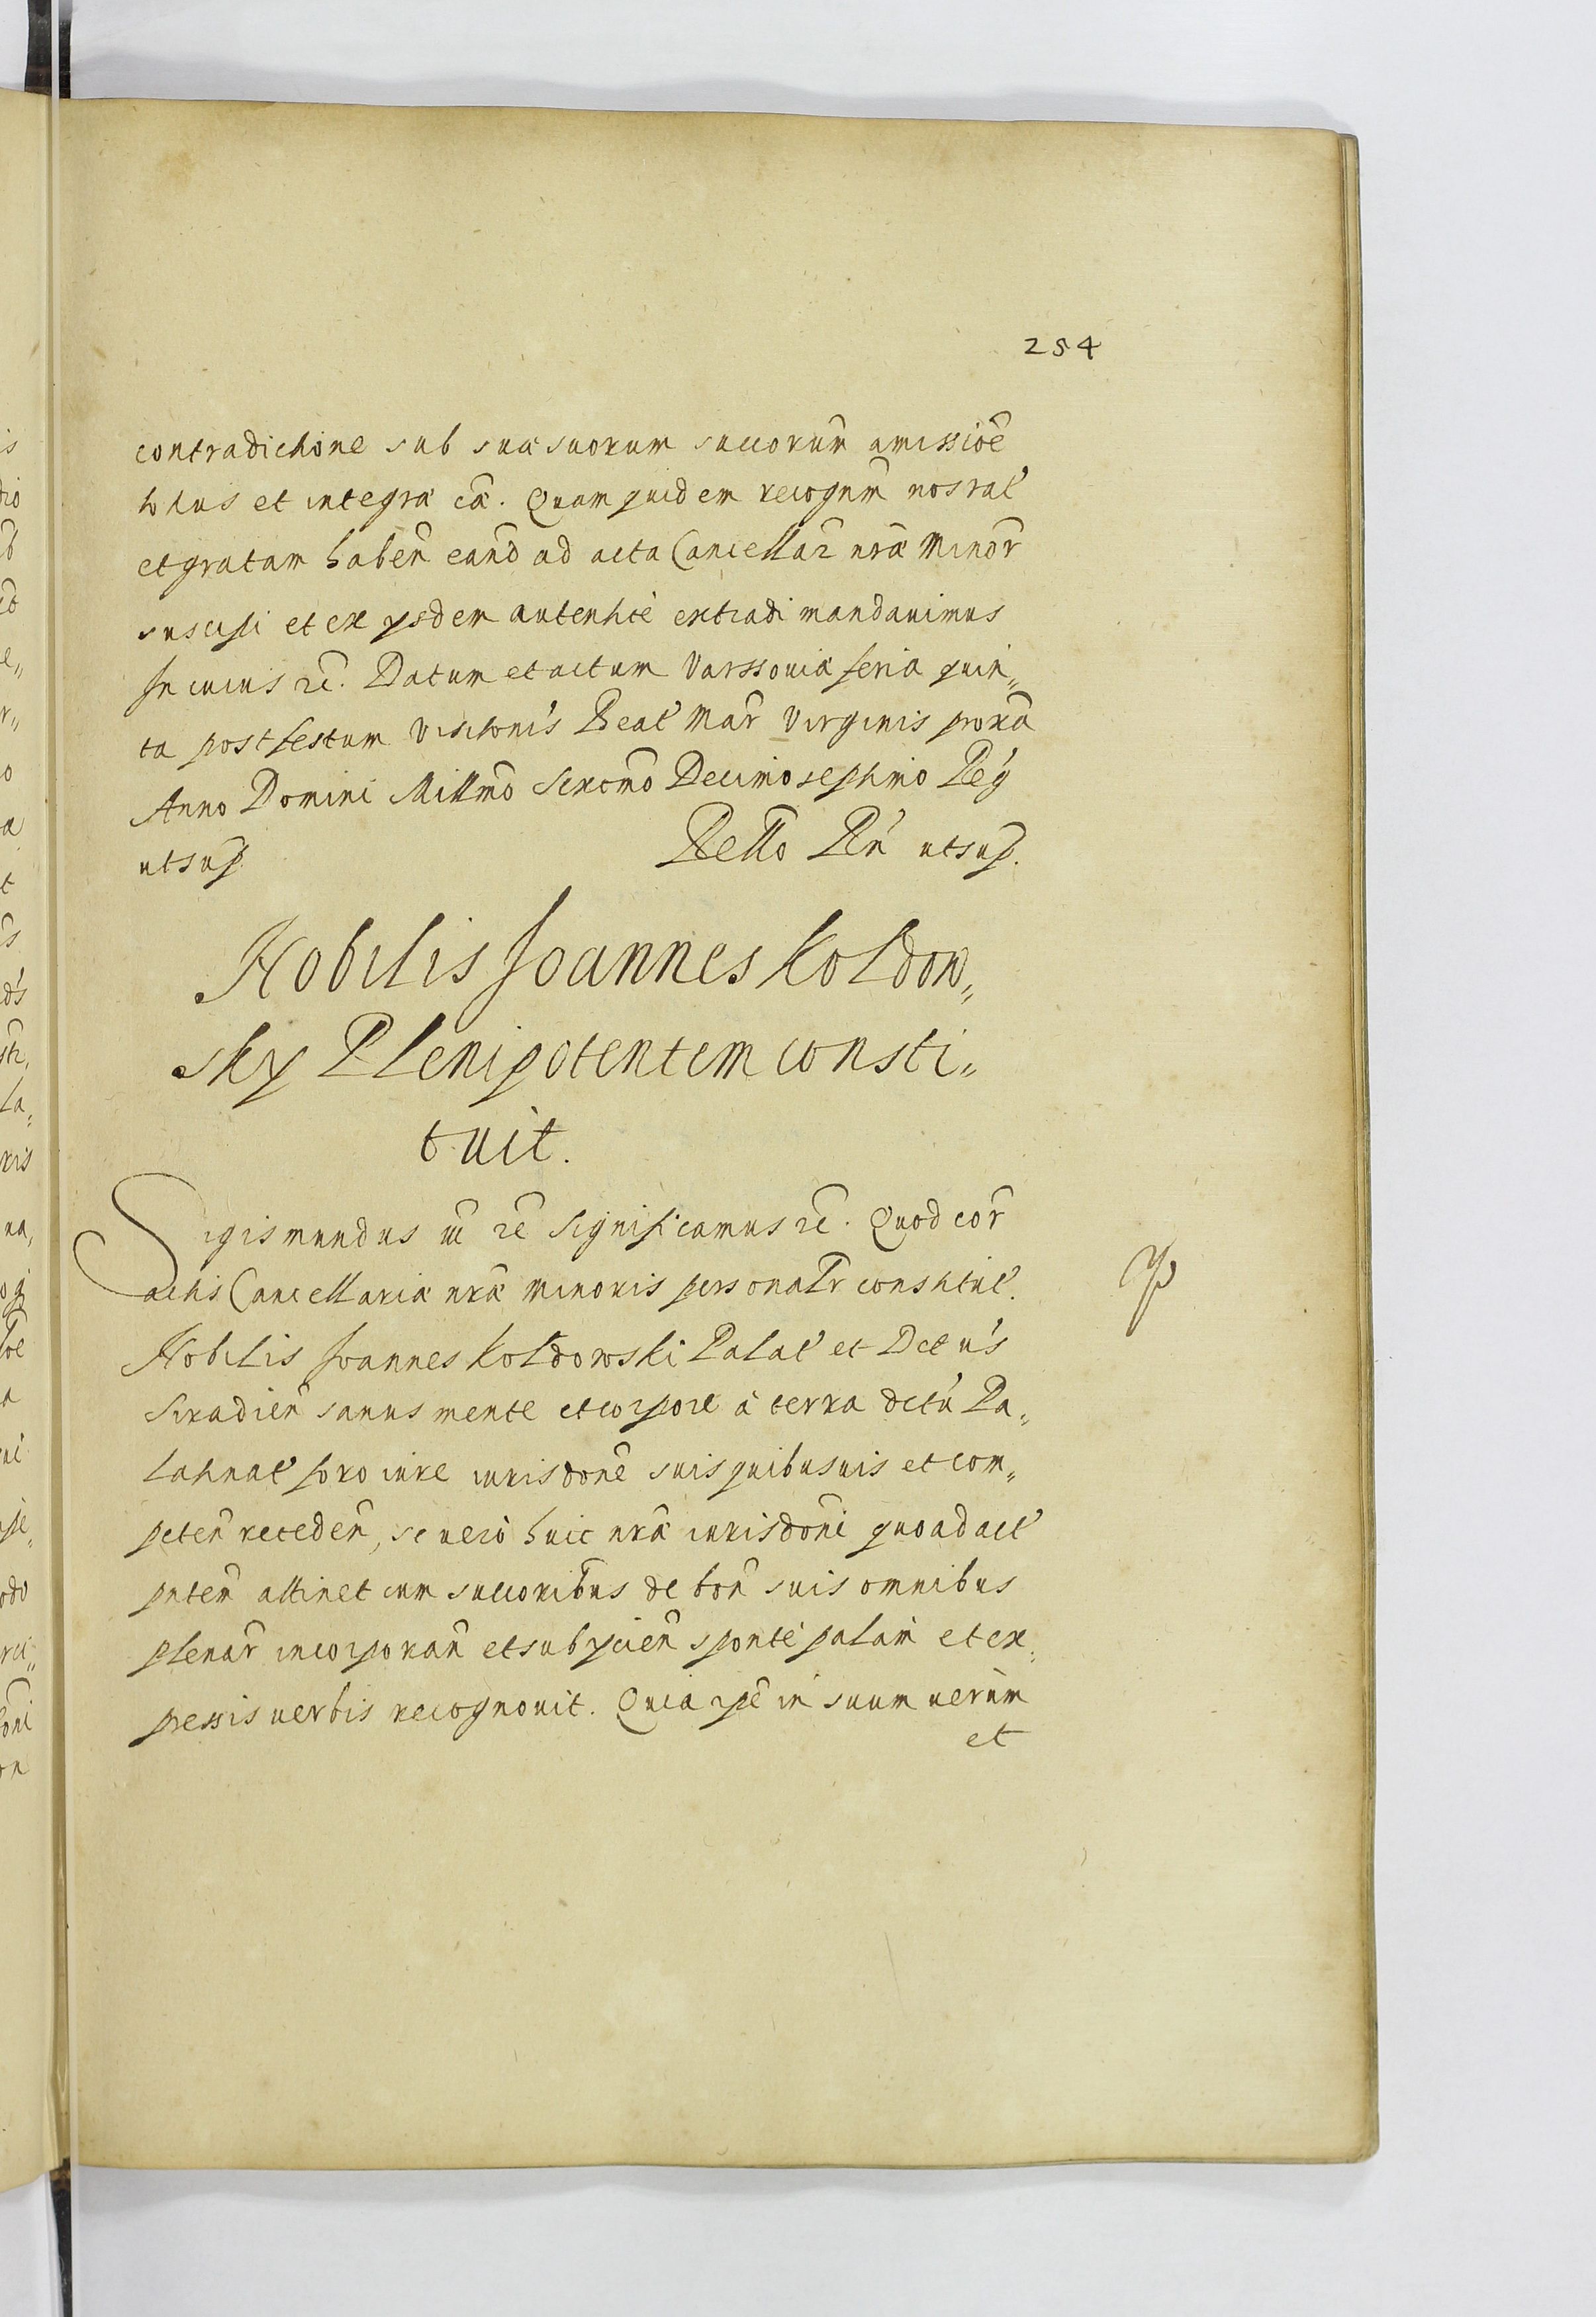 254
contradictione sub sua suorum succorum̄ amissiōe
totius et integræ cā. Quam quidem recognm̄ nos rat
et gratam haben̄ eand̄ ad acta Cancellar̄ nræ Minor̄
suscipi et ex ysdem autenticè extradi mandauimus
In cuius rc̄. Datum et actum Varssouiæ feria quin„
ta post festum Visitonis Beat Mar̄ Virginis proxā
Anno Domini Millmō Sexcmō Decimoseptimo Reg
utsup. Bello Pn̄ utsup.
Nobilis Joannes Koldow„
sky Plenipotentem consti„
tuit.
Sigismundus iii rc̄ Significamus rc̄. Quod cor̄
actis Cancellariæ nræ Minoris personalr constitut.
Nobilis Joannes Koldowski Palat et Dct us
Siradien̄ sanus mente et corpore à terra dctū Pa„
latinat foro iure iurisdone suis quibusuis et com„
peten̄ receden̄, se uerò huic nræ iurisdoni quoad act
pnten̄ attinet cum succoribus de bon̄ suis omnibus
plenar̄ incorporan̄ et subycien̄ spontè palàm et ex„
pressis uerbis recognouit. Quia ipē in suum uerùm
et